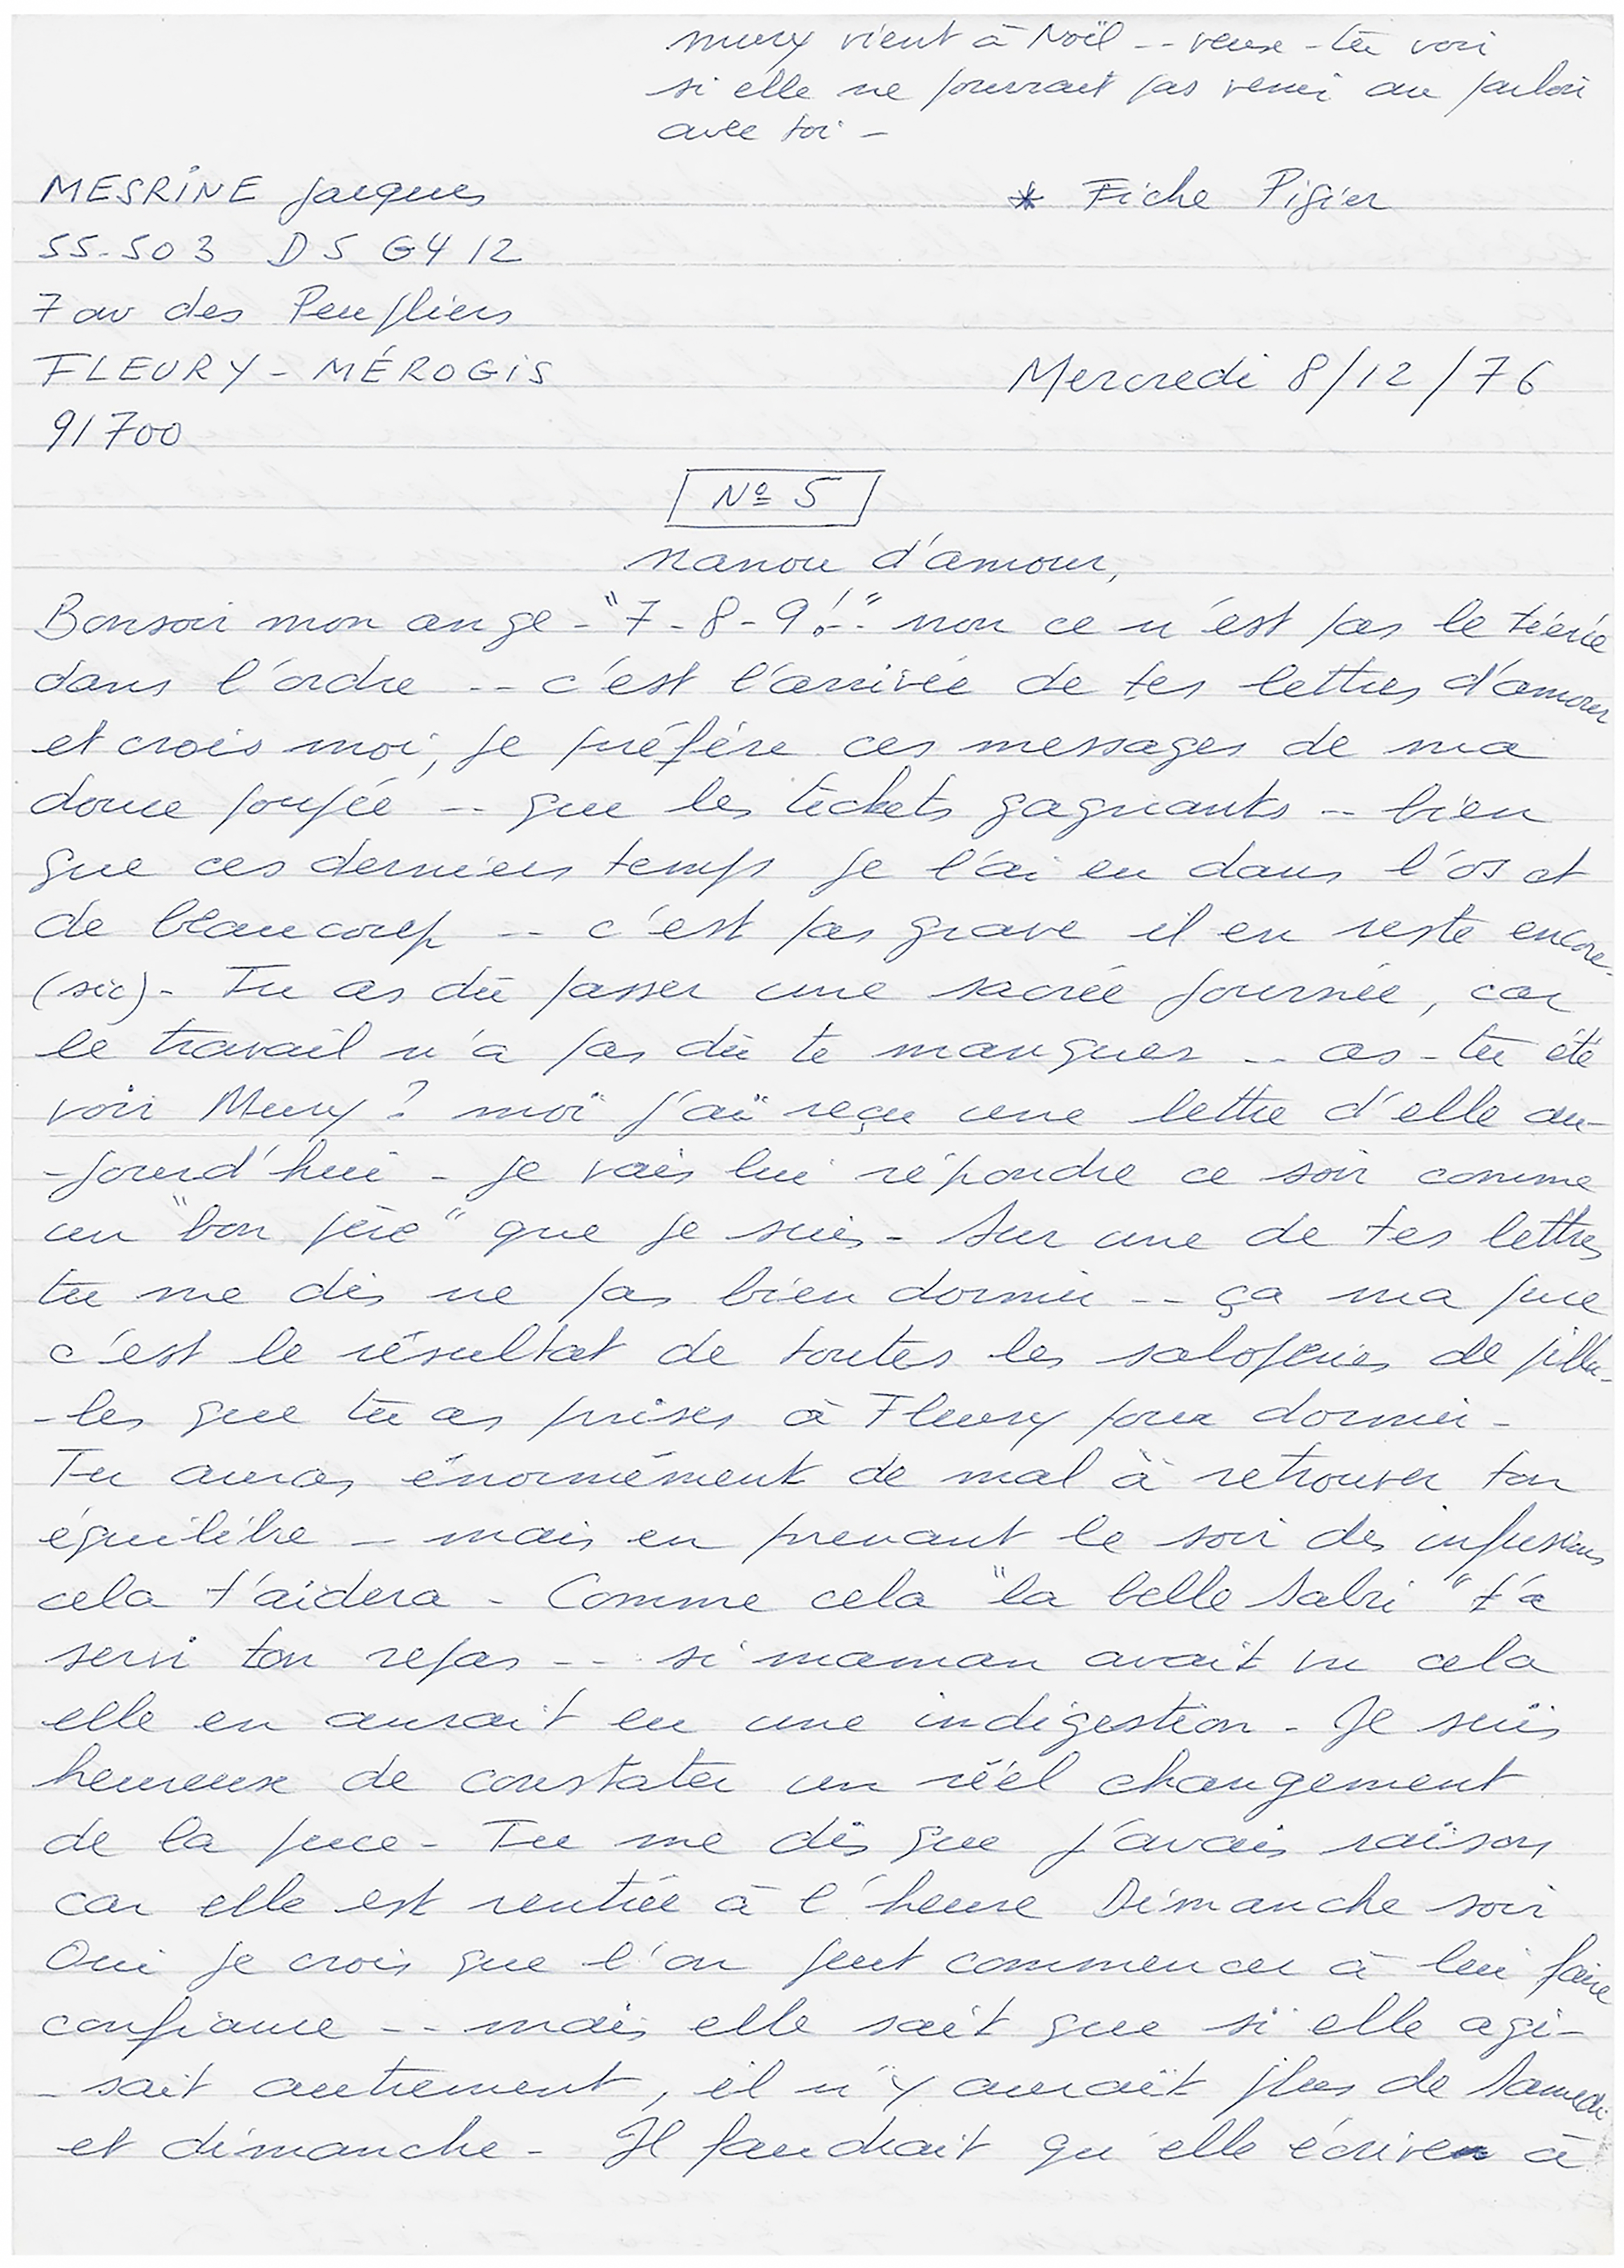 Mury vient à Noël -- veux-tu voir
si elle ne pourrait pas venir au parloir
avec toi -
MESRINE Jacques
55-503 D5 G4 12
7 av des Peupliers
FLEURY-MÉROGIS
91700
* Fiche Pigier
Mercredi 8/12/76
Nº 5
Nanou d'amour,
Bonsoir mon ange - "7-8-9!.." non ce n'est pas le tiércé
dans l'ordre -- c'est l'arrivée de tes lettres d'amour
et crois moi, je préfére ces messages de ma
douce poupée -- que les tickets gagnants -- bien
que ces derniers temps je l'ai eu dans l'os et
de beaucoup -- c'est pas grave il en reste encore-
(sic)- Tu as dû passer une sacrée journée, car
le travail n'a pas dû te manquer -- as-tu été
voir Mury? moi j'ai reçu une lettre d'elle au-
-jourd'hui - je vais lui répondre ce soir comme
un "bon père" que je suis - Sur une de tes lettres
tu me dis ne pas bien dormir -- ça ma puce
c'est le résultat de toutes les saloperies de pillu-
-les que tu as prises à Fleury pour dormir -
Tu auras énormément de mal à retrouver ton
équilibre - mais en prenant le soir des infusions
cela t'aidera - Comme cela "la belle Sabri" t'a
servi ton repas -- si maman avait vu cela
elle en aurait eu une indigestion - Je suis
heureux de constater un réel changement
de la puce - Tu me dis que j'avais raison
car elle est rentrée à l'heure Dimanche soir
Oui je crois que l'on peut commencer à lui faire
confiance -- mais elle sait que si elle agi-
-sait autrement, il n'y aurait plus de Samedi
et dimanche - Il faudrait qu'elle écrive à